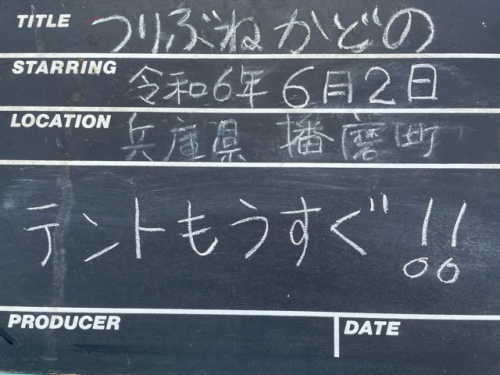 TITLE つりぶねかどの
STARRING 令和6年 6月2日
LOCATION 兵庫県 播磨町
テントもうすぐ!!
PRODUCER DATE